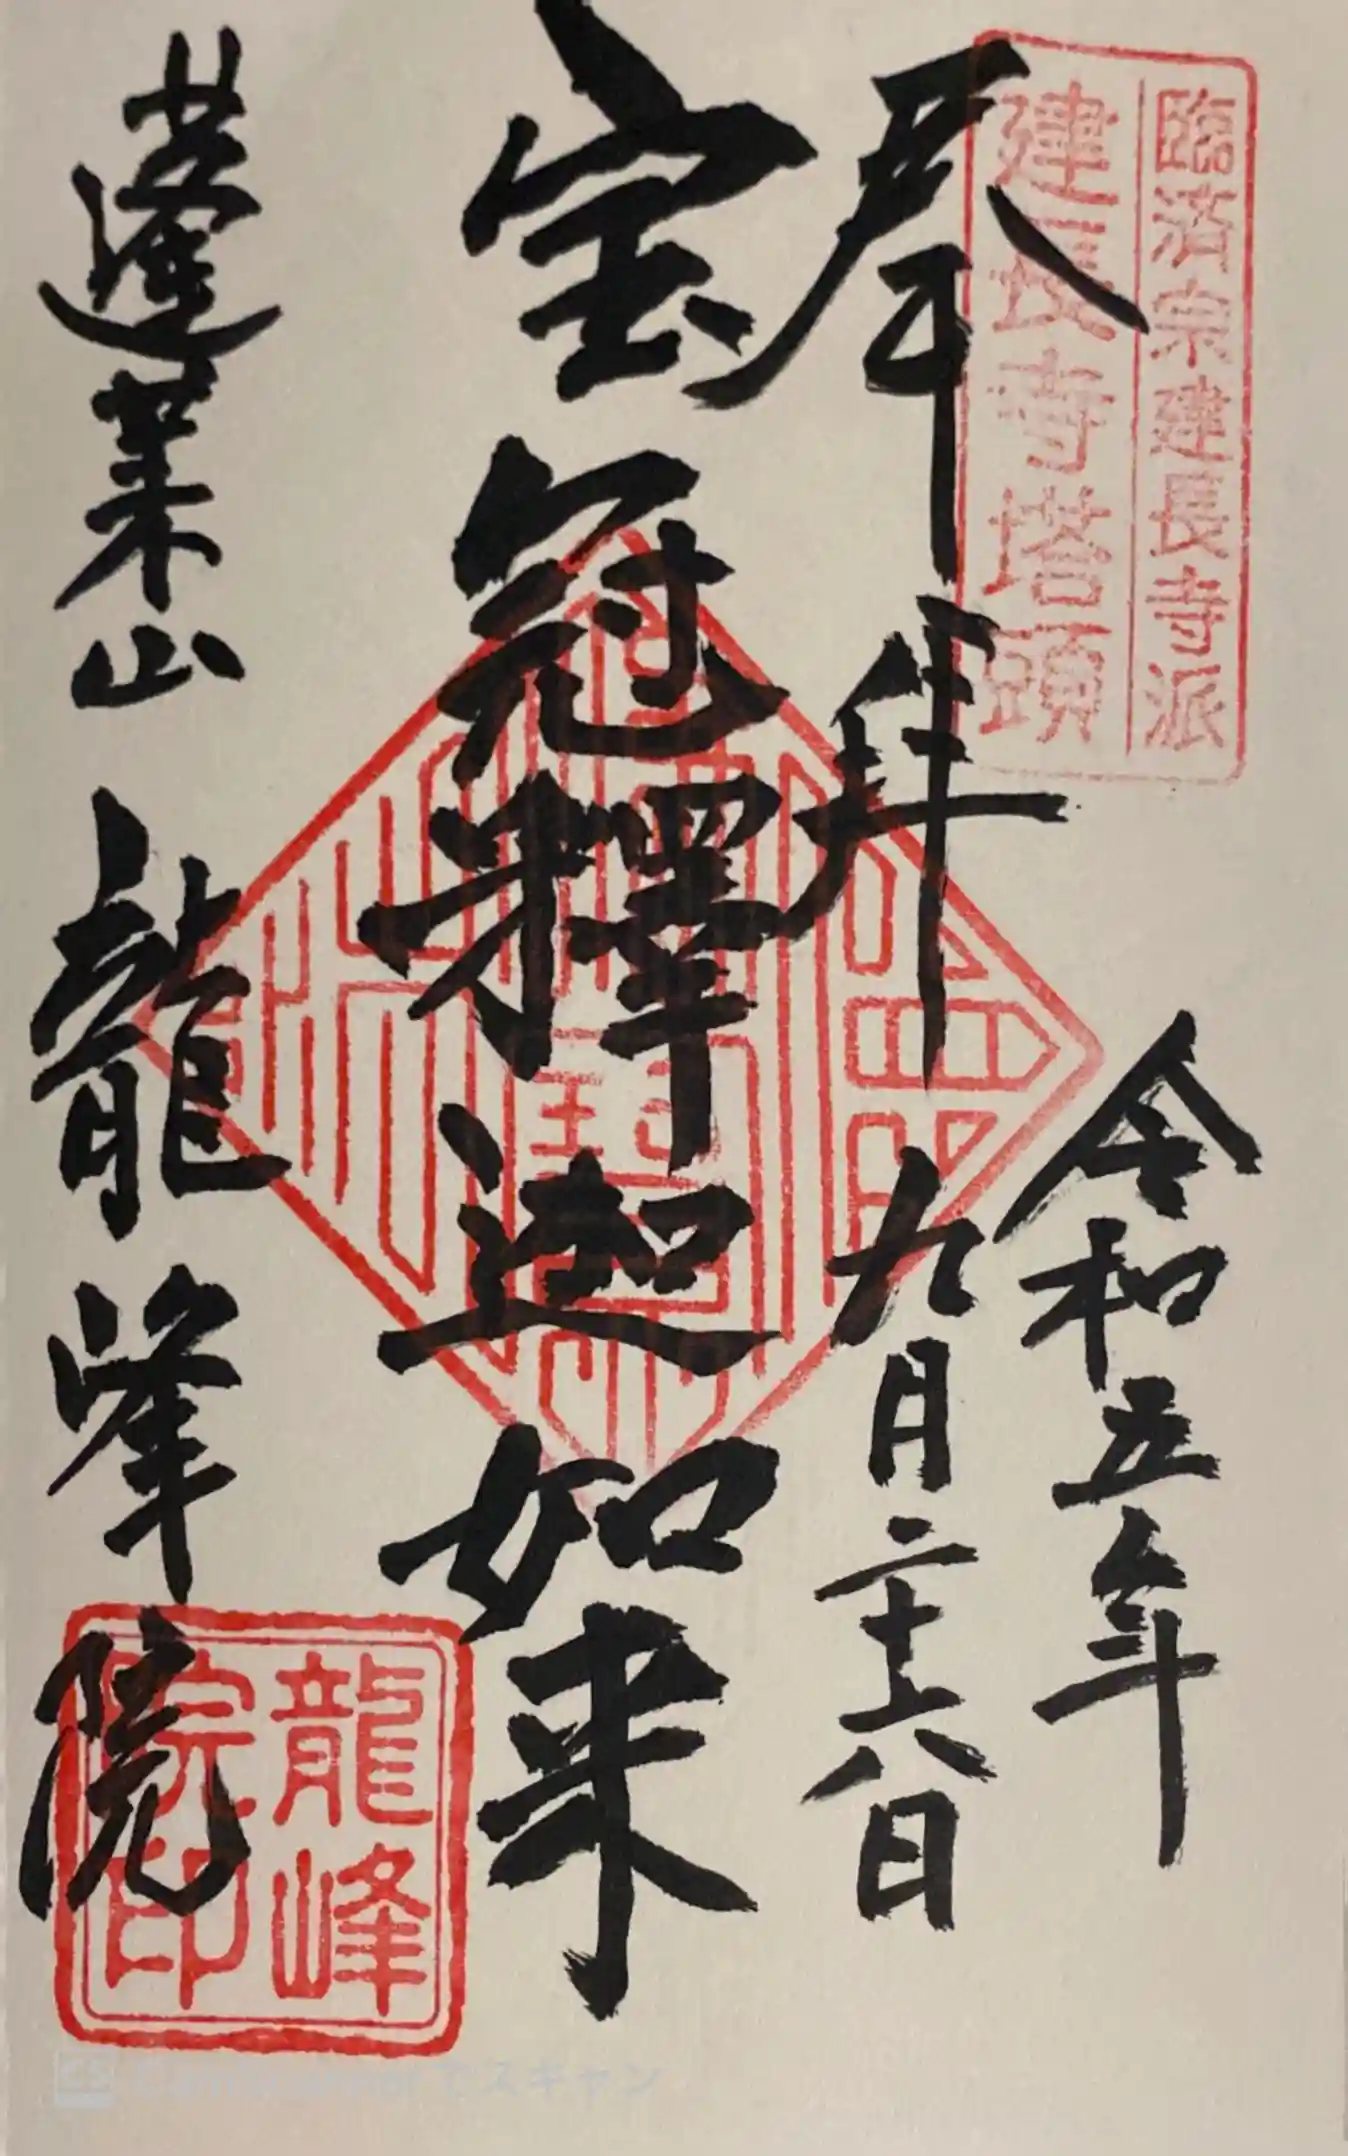 臨済宗建長寺派
建長寺塔頭
奉拝
令和五年
九月二十六日
宝冠釋迦如来
蓬莱山 龍峰院
龍峰
院印
CamScannerでスキャン